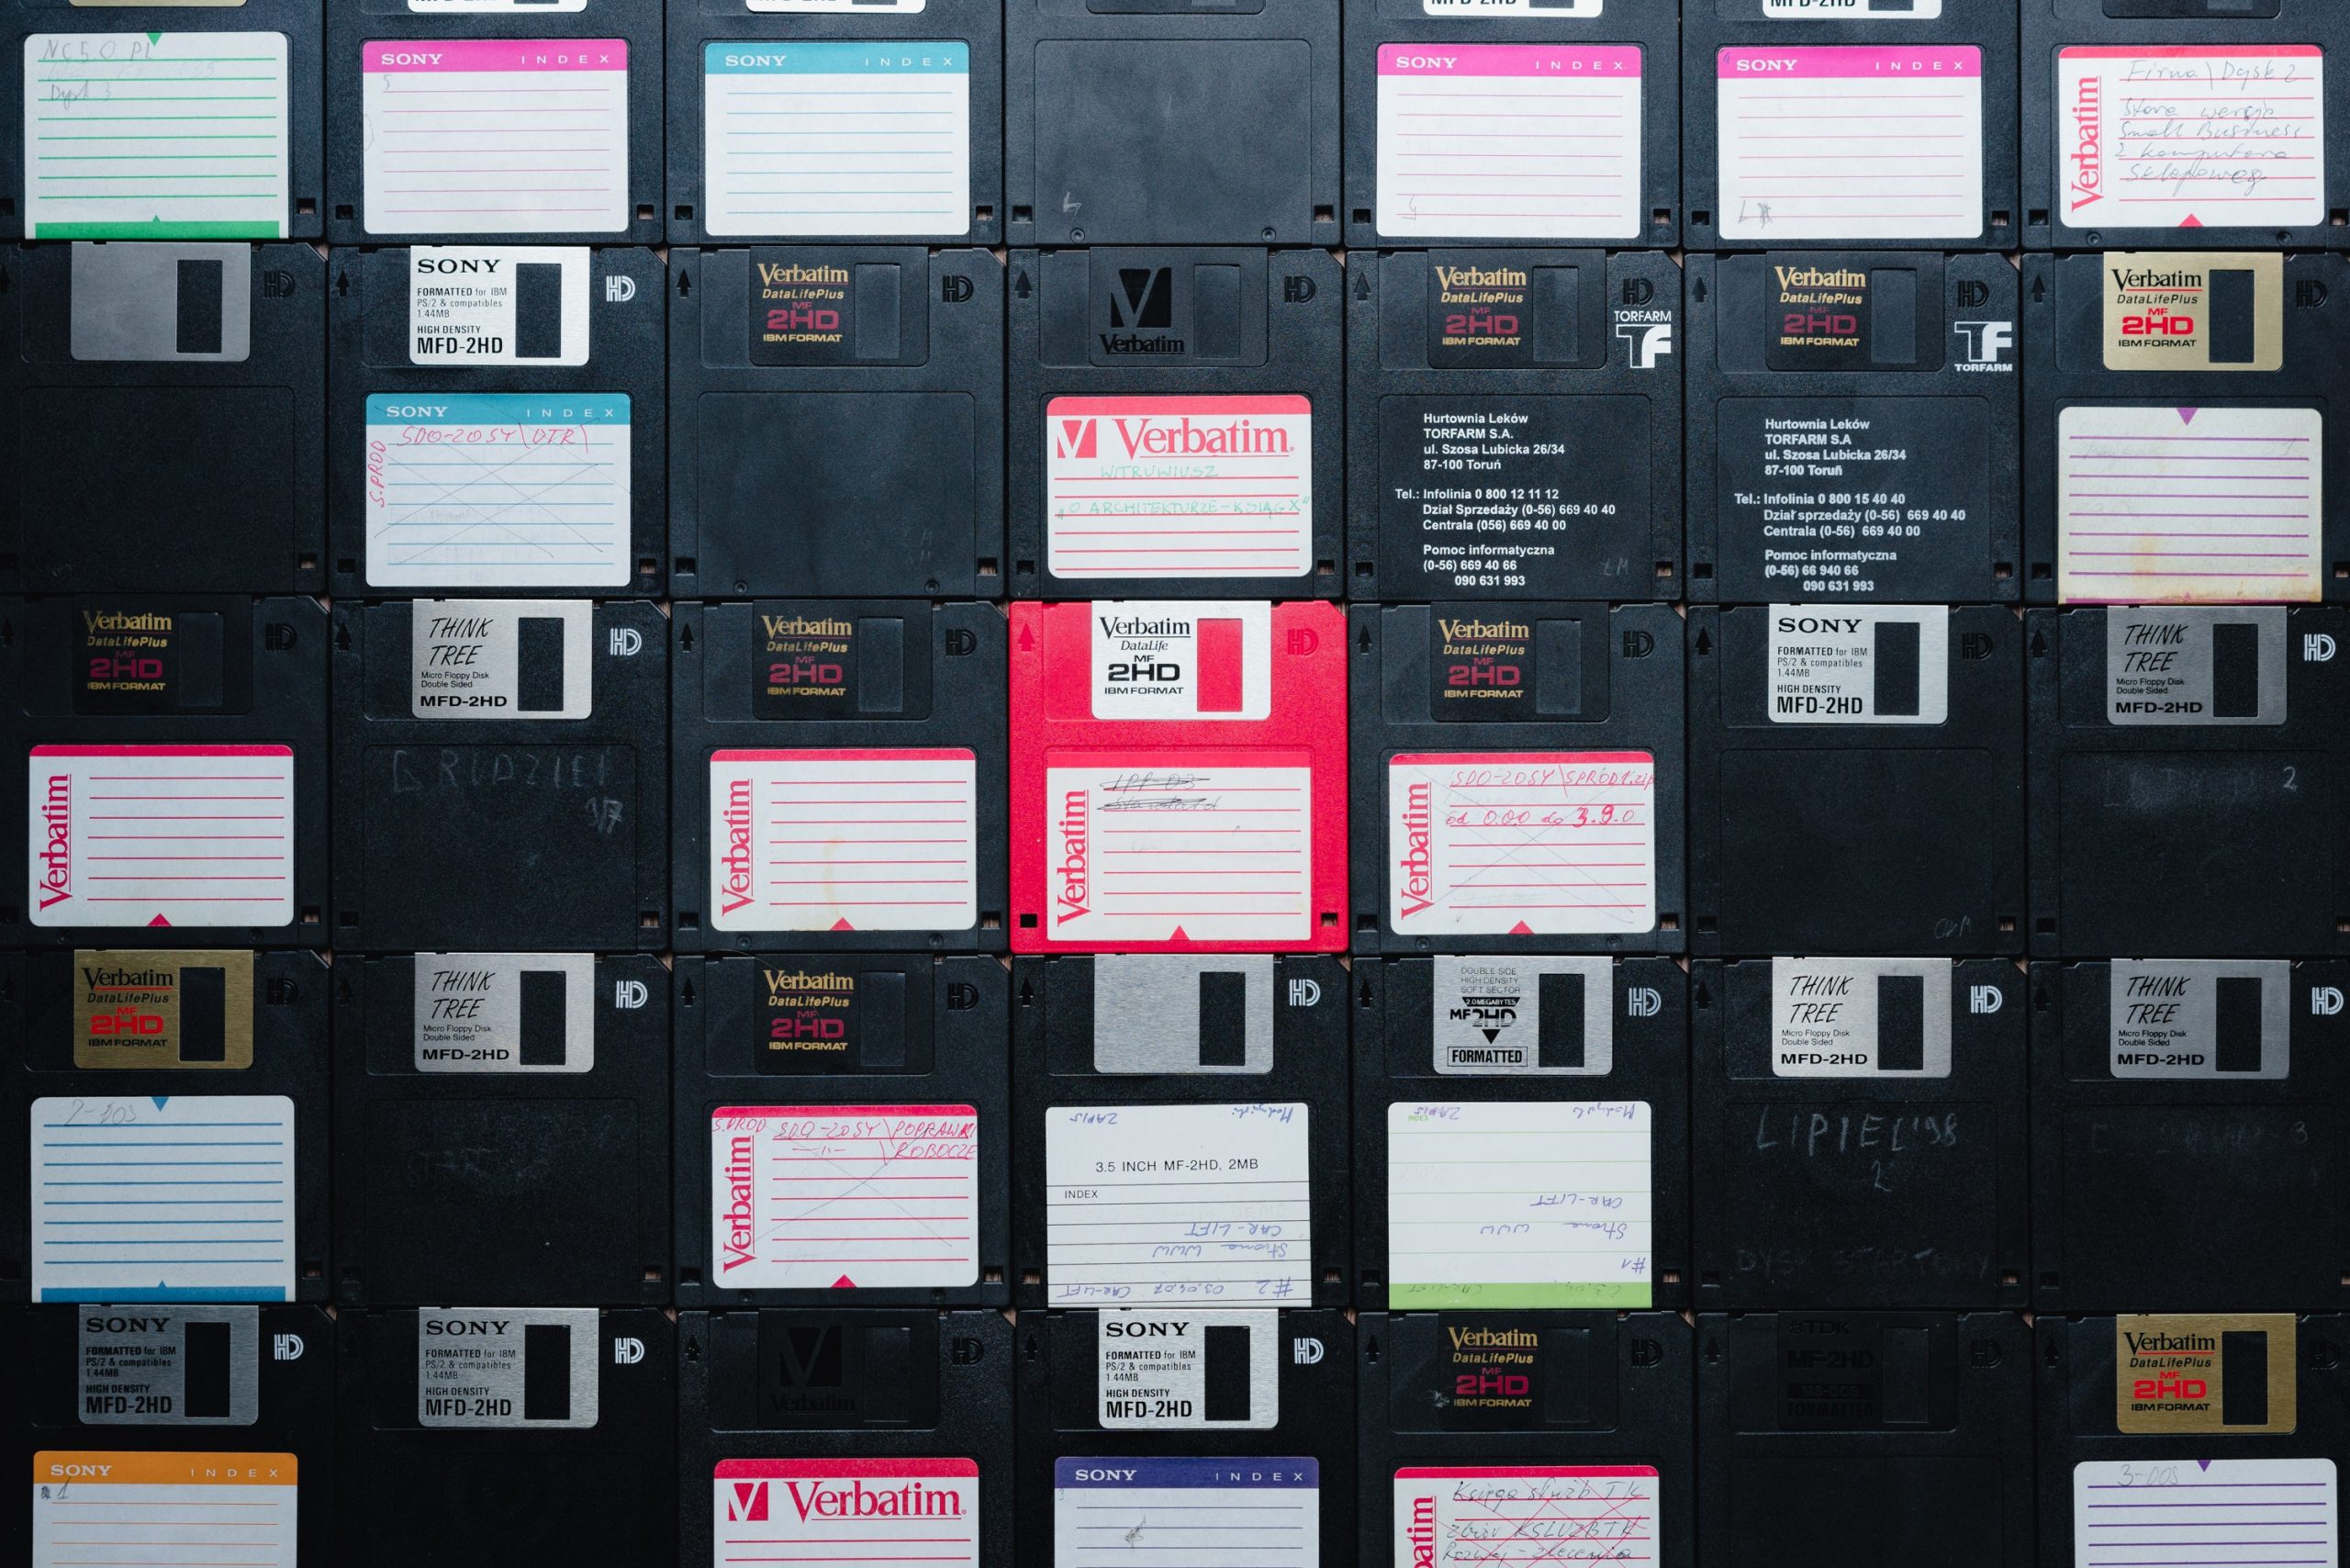 MFD-2HD
MFD-2HD
MFD-2HD
MFD-2HD
NC 5.0 PL
Dysk 3
SONY INDEX
5
SONY INDEX
4
SONY INDEX
SONY INDEX
Verbatim
Firma \ Dysk 2
Stara wersja
Small Business
z komputera
Sklepoweg
HD
SONY
FORMATTED for IBM
PS/2 & compatibles
1.44MB
HIGH DENSITY
MFD-2HD
HD
SONY INDEX
SDO-20SY\DTR\
S.PROD
Verbatim
DataLifePlus
MF
2HD
IBM FORMAT
HD
Verbatim
HD
Verbatim
WITRUWIUSZ
"O ARCHITEKTURZE - KSIĄG X"
Verbatim
DataLifePlus
MF
2HD
IBM FORMAT
HD
TORFARM
TF
Hurtownia Leków
TORFARM S.A.
ul. Szosa Lubicka 26/34
87-100 Toruń
Tel.: Infolinia 0 800 12 11 12
Dział Sprzedaży (0-56) 669 40 40
Centrala (056) 669 40 00
Pomoc informatyczna
(0-56) 669 40 66
090 631 993
Verbatim
DataLifePlus
MF
2HD
IBM FORMAT
HD
TF
TORFARM
Hurtownia Leków
TORFARM S.A
ul. Szosa Lubicka 26/34
87-100 Toruń
Tel.: Infolinia 0 800 15 40 40
Dział sprzedaży (0-56) 669 40 40
Centrala (0-56) 669 40 00
Pomoc informatyczna
(0-56) 66 940 66
090 631 993
Verbatim
DataLifePlus
MF
2HD
IBM FORMAT
HD
Verbatim
DataLifePlus
MF
2HD
IBM FORMAT
HD
Verbatim
THINK
TREE
Micro Floppy Disk
Double Sided
MFD-2HD
HD
GRIDZIEŃ
Verbatim
DataLifePlus
MF
2HD
IBM FORMAT
HD
Verbatim
Verbatim
DataLife
MF
2HD
IBM FORMAT
HD
Verbatim
Verbatim
DataLifePlus
MF
2HD
IBM FORMAT
HD
Verbatim
SDO-20SY\SPROD1.zip
od 0.00 do 3.9.0
SONY
FORMATTED for IBM
PS/2 & compatibles
1.44MB
HIGH DENSITY
MFD-2HD
HD
THINK
TREE
Micro Floppy Disk
Double Sided
MFD-2HD
HD
2
Verbatim
DataLifePlus
MF
2HD
IBM FORMAT
HD
7-DOS
THINK
TREE
Micro Floppy Disk
Double Sided
MFD-2HD
HD
Verbatim
DataLifePlus
MF
2HD
IBM FORMAT
HD
Verbatim
S.PROD SDO-20SY\POPRAWKI
-11- ROBOCZE
HD
ZAPIS
3.5 INCH MF-2HD, 2MB
INDEX
CAR-LIFT
Strona WWW
#2 03.04.07 CAR-LIFT
DOUBLE SIDE
HIGH DENSITY
SOFT SECTOR
2.0 MEGABYTES
MF2HD
FORMATTED
HD
INDEX
ZAPIS
CAR-LIFT
Strona WWW
#1
THINK
TREE
Micro Floppy Disk
Double Sided
MFD-2HD
HD
LIPIEC '98
2
DYSK STARTOWY
THINK
TREE
Micro Floppy Disk
Double Sided
MFD-2HD
HD
3
SONY
FORMATTED for IBM
PS/2 & compatibles
1.44MB
HIGH DENSITY
MFD-2HD
HD
SONY INDEX
#1
SONY
FORMATTED for IBM
PS/2 & compatibles
1.44MB
HIGH DENSITY
MFD-2HD
HD
Verbatim
HD
Verbatim
SONY
FORMATTED for IBM
PS/2 & compatibles
1.44MB
HIGH DENSITY
MFD-2HD
HD
SONY INDEX
Verbatim
DataLifePlus
MF
2HD
IBM FORMAT
HD
Księga służb TK
zbiór KSLUZBTK
Rozwój - zlecenia
TDK
MF-2HD
FORMATTED
HD
Verbatim
DataLifePlus
MF
2HD
IBM FORMAT
3-DOS